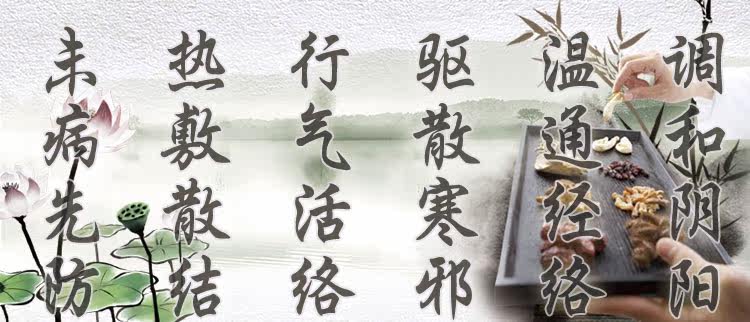 调和阴阳
温通经络
驱散寒邪
行气活络
热敷散结
未病先防